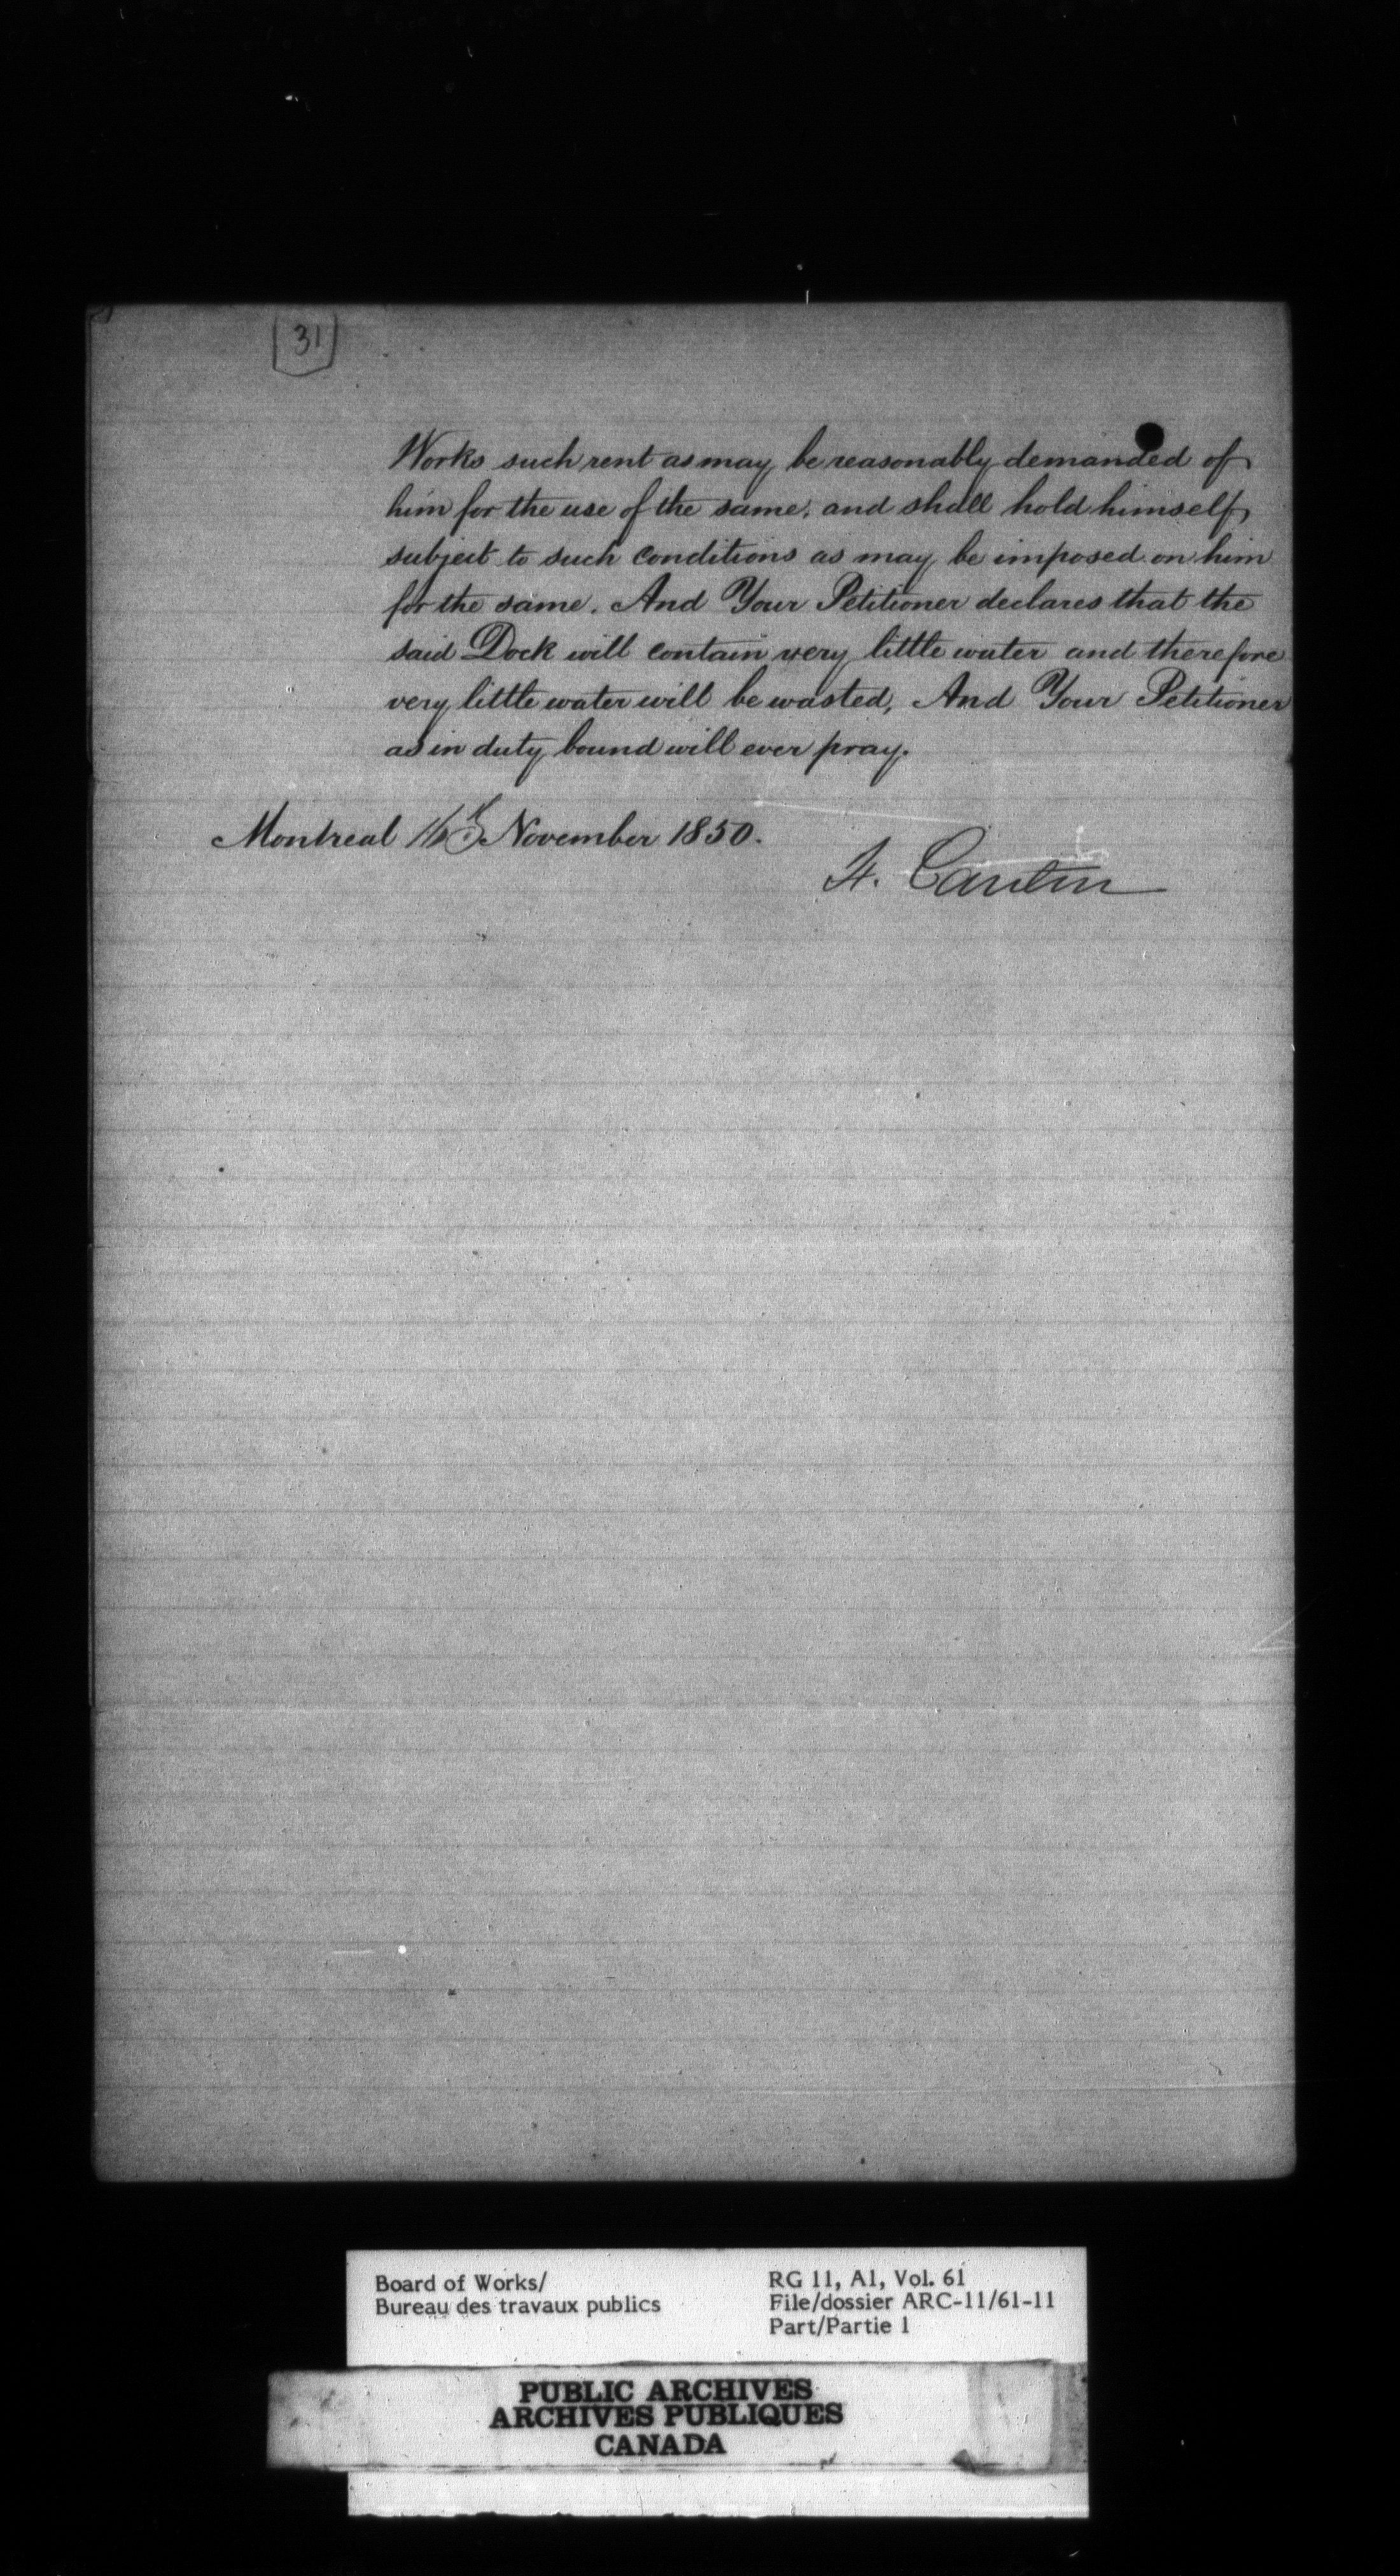 31
Works such rent as may be reasonably demanded of
him for the use of the same, and shall hold himself
subject to such conditions as may be imposed on him
for the same. And Your Petitioner declares that the
said Dock will contain very little water and therefore
very little water will be wasted, And Your Petitioner
as in duty bound will ever pray.
Montreal November 1850.
Cantin
Board of Works/
Bureau des travaux publics
RG 11, A1, Vol. 61
File/dossier ARC-11/61-11
Part/Partie 1
PUBLIC ARCHIVES
ARCHIVES PUBLIQUES
CANADA